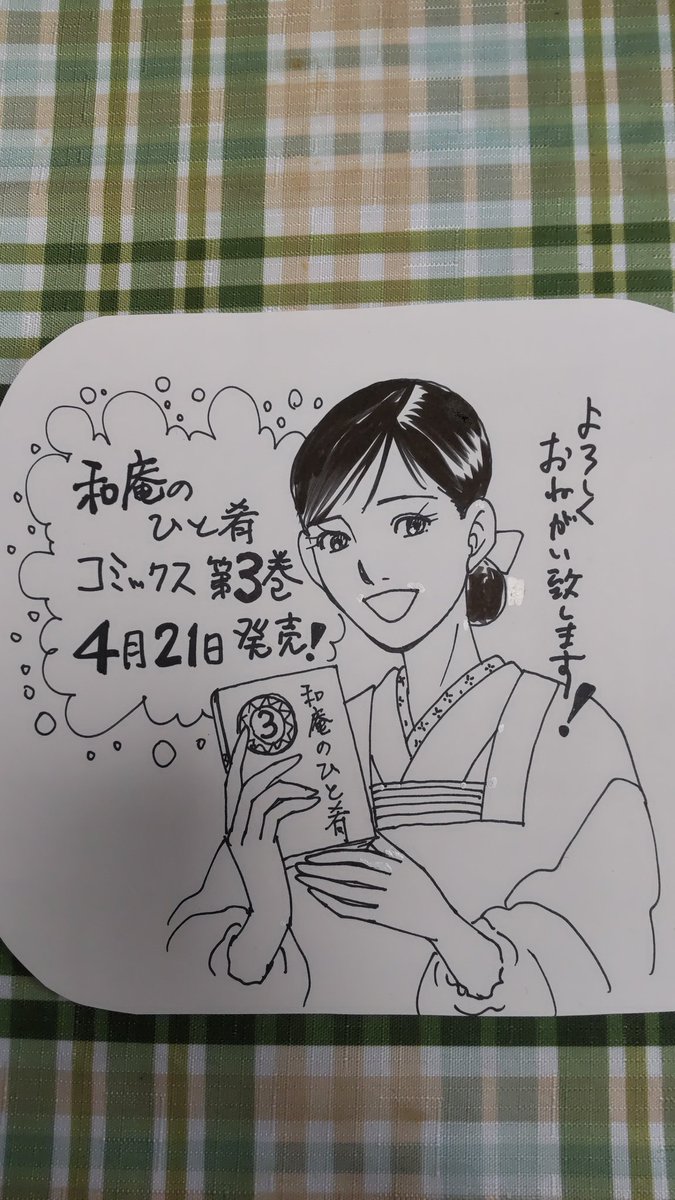 よろしく
おねがい致します!
和庵の
ひと肴
コミックス 第3巻
4月21日 発売!
3
和庵のひと肴